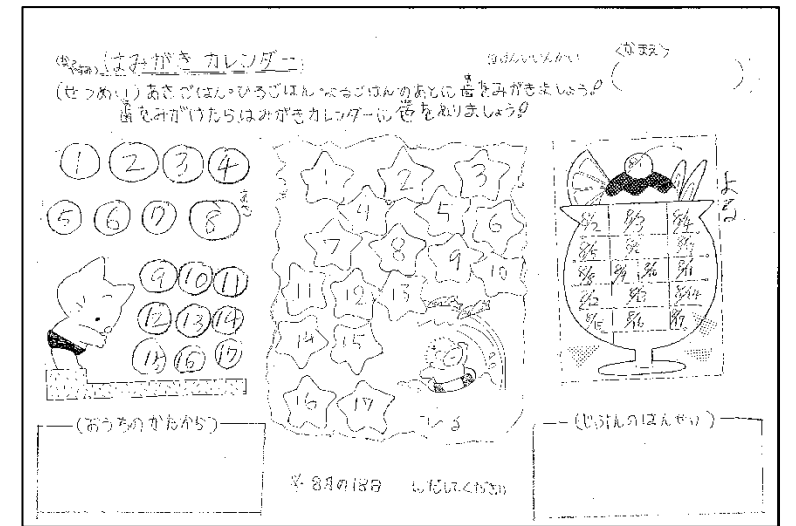 はみがきカレンダー
<なまえ>
(せつめい)あさごはん・ひるごはん・よるごはんのあとに歯をみがきましょう。
歯をみがけたらはみがきカレンダーに色をぬりましょう!
あさ
1 2 3 4
5 6 7 8
9 10 11
12 13 14
15 16 17
1 2 3
4 5 6
7 8 9 10
11 12 13
14 15
16 17
よる
8/1
8/2 8/3 8/4
8/5 8/6 8/7
8/8 8/9 8/10 8/11
8/12 8/13 8/14
8/15 8/16 8/17
(おうちのかたから)
(じぶんのはんせい)
※ 8月の18日 にだしてください